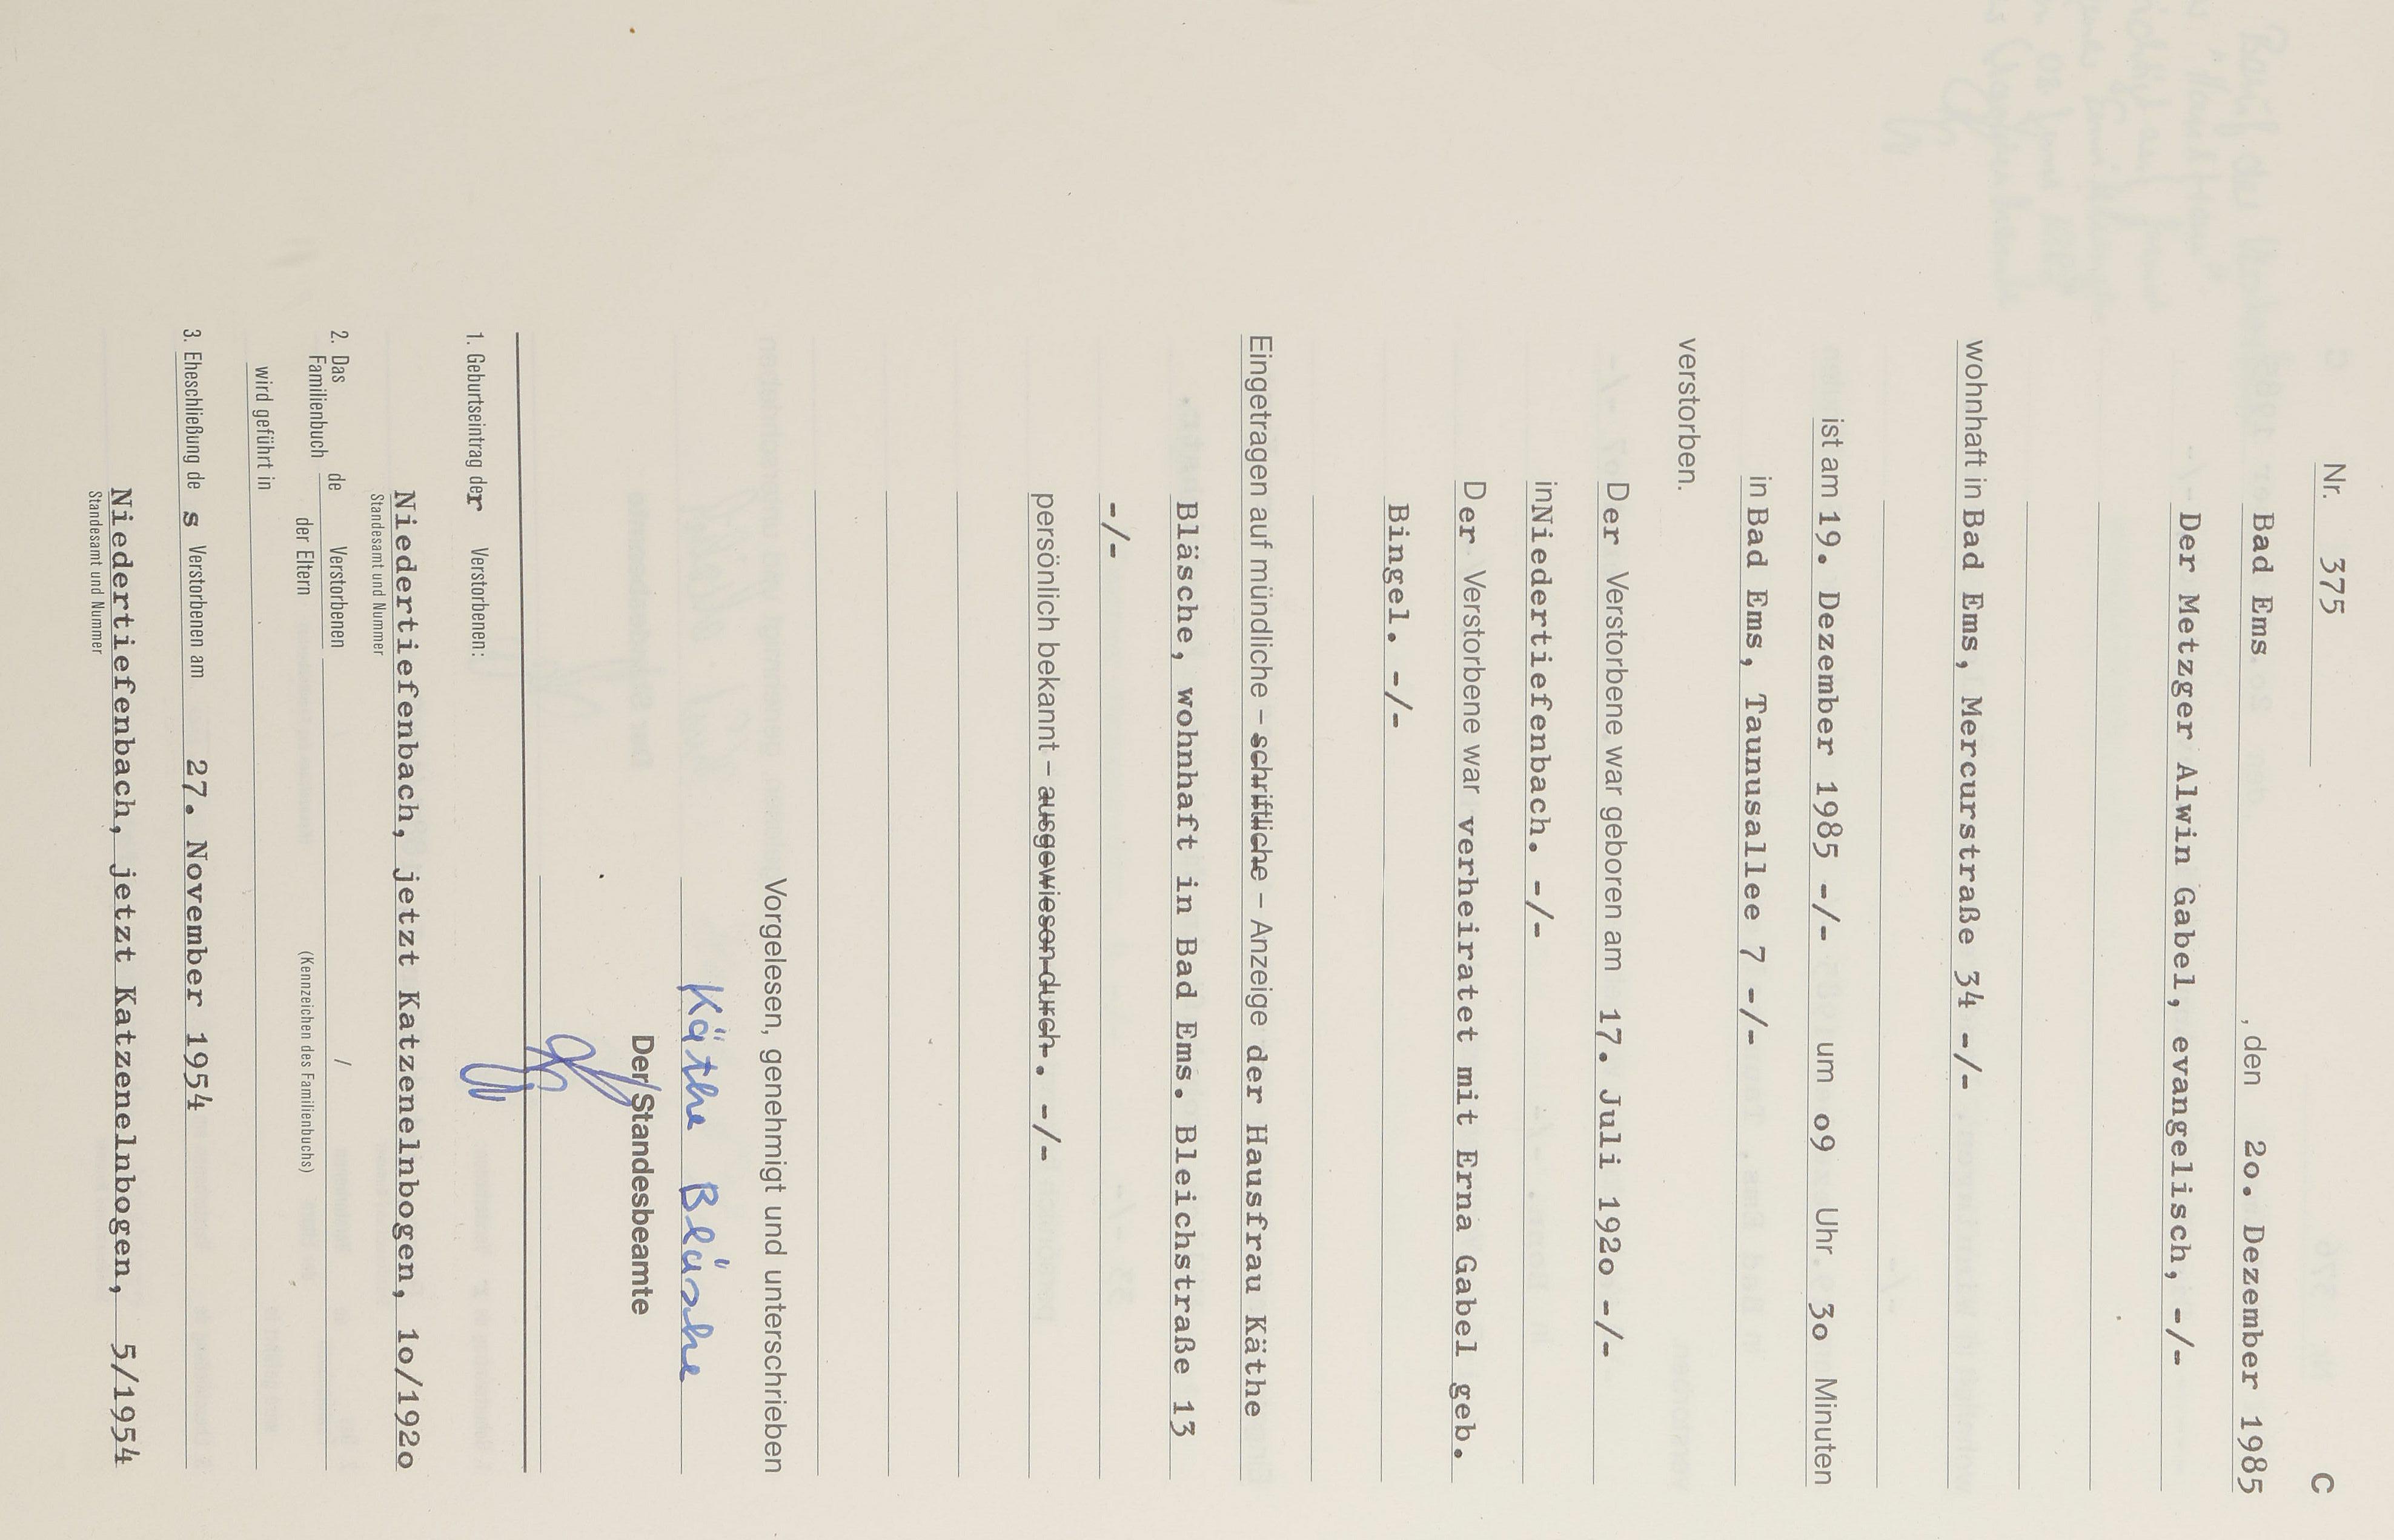 Nr. 375 C
Bad Ems , den 2o. Dezember 1985
Der Metzger Alwin Gabel, evangelisch, -/-
wohnhaft in Bad Ems, Mercurstraße 34 -/-
ist am 19. Dezember 1985 -/- um o9 Uhr 3o Minuten
in Bad Ems, Taunusallee 7 -/-
verstorben.
Der Verstorbene war geboren am 17. Juli 192o -/-
in Niedertiefenbach. -/-
Der Verstorbene war verheiratet mit Erna Gabel geb.
Bingel. -/-
Eingetragen auf mündliche – schriftliche – Anzeige der Hausfrau Käthe
Bläsche, wohnhaft in Bad Ems. Bleichstraße 13
-/-
persönlich bekannt – ausgewiesen durch. . -/-
Vorgelesen, genehmigt und unterschrieben
Käthe Bläsche
Der Standesbeamte
1. Geburtseintrag der Verstorbenen:
Niedertiefenbach, jetzt Katzenelnbogen, 1o/192o
Standesamt und Nummer
2. Das Familienbuch de Verstorbenen /
der Eltern (Kennzeichen des Familienbuchs)
wird geführt in
3. Eheschließung de s Verstorbenen am 27. November 1954
Niedertiefenbach, jetzt Katzenelnbogen, 5/1954
Standesamt und Nummer